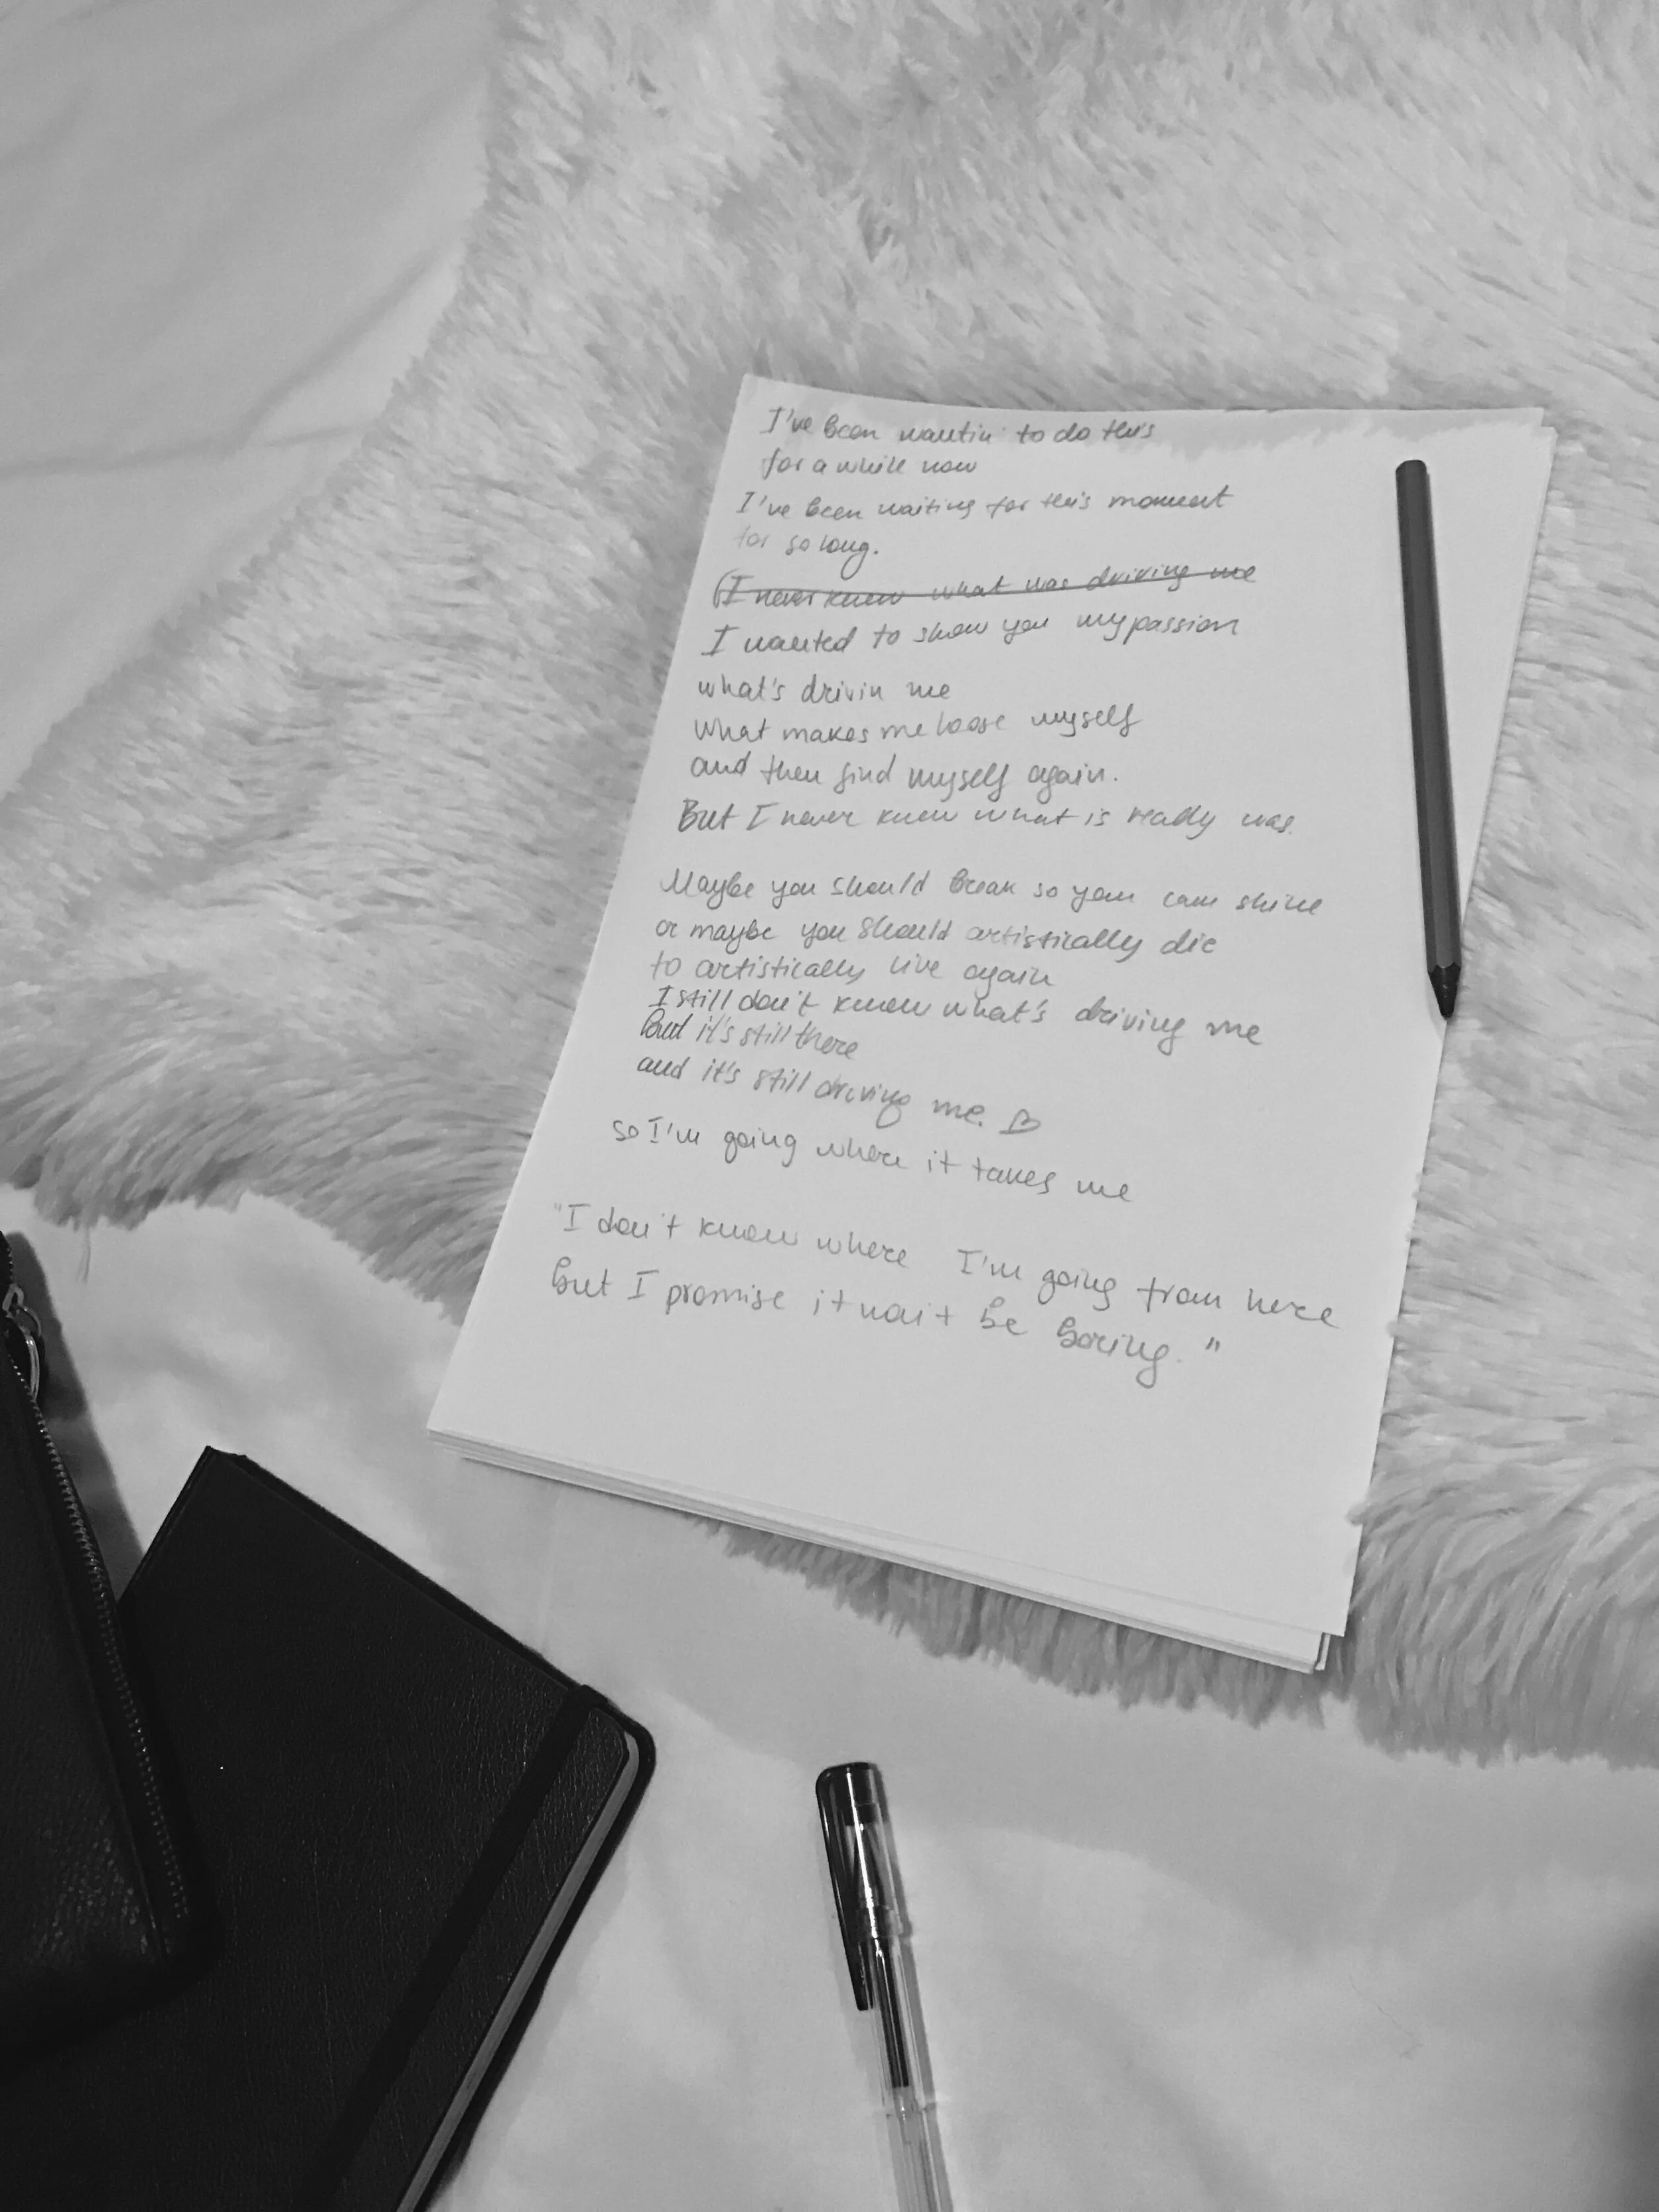 I've been wantin' to do this
for a while now
I've been waiting for this moment
for so long.
(I never knew what was driving me
I wanted to show you my passion
what's drivin me
What makes me loose myself
and then find myself again.
But I never knew what is really was.
Maybe you should break so you can shine
or maybe you should artistically die
to artistically live again
I still don't know what's driving me
but it's still there
and it's still driving me. ♡
so I'm going where it takes me
"I don't know where I'm going from here
but I promise it won't be boring."